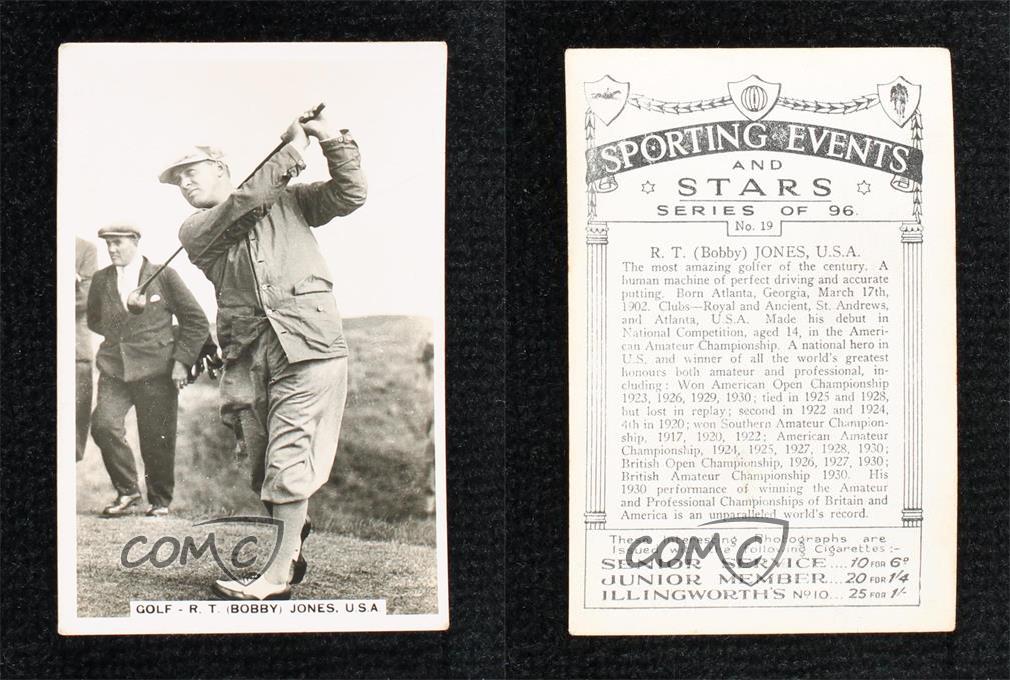 GOLF - R. T. (BOBBY) JONES, U.S.A
COMC
SPORTING EVENTS
AND
STARS
SERIES OF 96.
No. 19
R. T. (Bobby) JONES, U.S.A.
The most amazing golfer of the century. A
human machine of perfect driving and accurate
putting. Born Atlanta, Georgia, March 17th,
1902. Clubs—Royal and Ancient, St. Andrews,
and Atlanta, U.S.A. Made his debut in
National Competition, aged 14, in the Ameri-
can Amateur Championship. A national hero in
U.S. and winner of all the world's greatest
honours both amateur and professional, in-
cluding: Won American Open Championship
1923, 1926, 1929, 1930; tied in 1925 and 1928,
but lost in replay; second in 1922 and 1924,
4th in 1920; won Southern Amateur Champion-
ship, 1917, 1920, 1922; American Amateur
Championship, 1924, 1925, 1927, 1928, 1930;
British Open Championship, 1926, 1927, 1930;
British Amateur Championship 1930. His
1930 performance of winning the Amateur
and Professional Championships of Britain and
America is an unparalleled world's record.
These Interesting Photographs are
Issued with the following Cigarettes:-
SENIOR SERVICE....10 FOR 6D
JUNIOR MEMBER...20 FOR 1/4
ILLINGWORTH'S No10...25 FOR 1/-
COMC